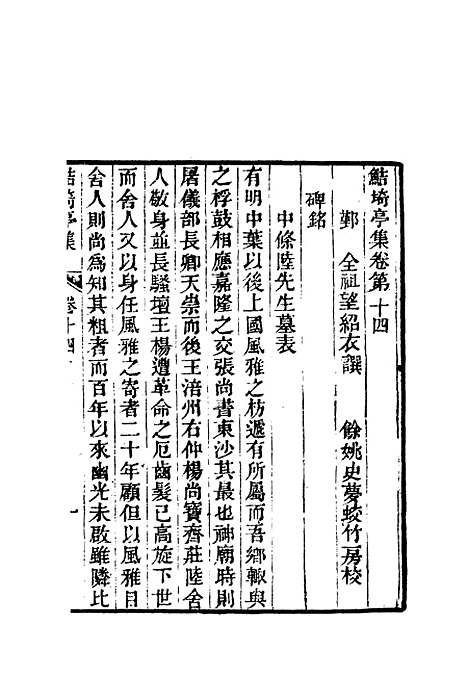 鮚埼亭集卷第十四
鄞 全祖望紹衣譔 餘姚史夢蛟竹房校
碑銘
中條陸先生墓表
有明中葉以後上國風雅之枋遞有所屬而吾鄉輒與
之桴鼓相應嘉隆之交張尚書東沙其最也神廟時則
屠儀部長卿天崇而後王涪州右仲楊尚寶齊莊陸舍
人敬身並長騷壇王楊遭革命之厄齒髮已高旋下世
而舍人又以身任風雅之寄者二十年顧但以風雅目
舍人則尚為知其粗者而百年以來幽光未啟雖隣比
鮚埼亭集 卷十四 一